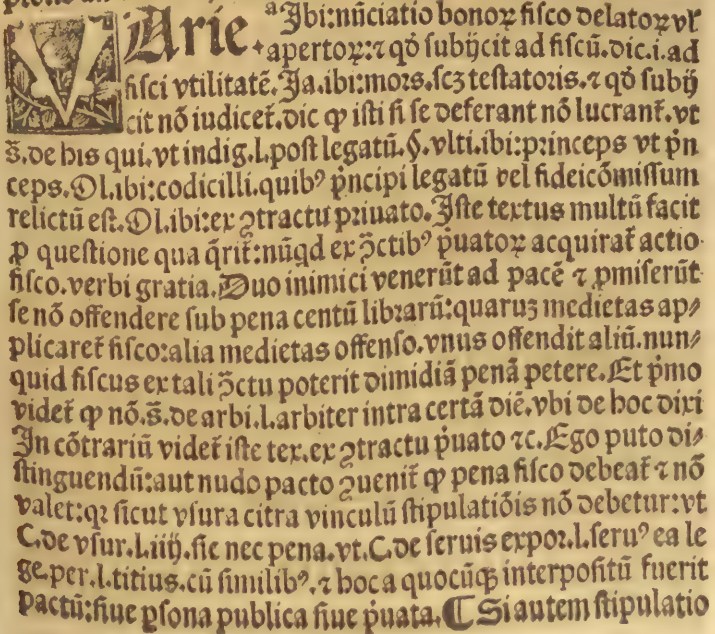 VArie. ᵃIbi:nũciatio bonoꝝ fisco delatoꝝ vƚ
apertoꝝ:⁊ qď subijcit ad fiscũ.dic.i.ad
fisci vtilitatẽ.Ja.ibi:moꝛs.scꝫ testatoꝛis.⁊ qď subij
cit nõ iudicet̃.dic ꝙ isti si se deferant nõ lucrant̃.vt
s̃.de his qui.vt indig.l.post legatũ.§.vlti.ibi:pꝛinceps vt pͥn
ceps.Ol.ibi:codicilli.quibꝰ pͥncipi legatũ vel fideicõmissum
relictũ est.Ol.ibi:ex ꝯtractu pꝛiuato.Iste textus multũ facit
ꝓ questione qua q̃rit̃:nũqd ex ꝯ̃ctibꝰ pͥuatoꝝ acquirat̃ actio
fisco.verbi gratia.Duo inimici venerũt ad pacẽ ⁊ ꝓmiserũt
se nõ offendere sub pena centũ libꝛarũ:quaruꝫ medietas ap⸗
plicaret̃ fisco:alia medietas offenso.vnus offendit aliũ.nun⸗
quid fiscus ex tali ꝯ̃ctu poterit dimidiã penã petere.Et pͥmo
videt̃ ꝙ nõ.s̃.de arbi.l.arbiter intra certã diẽ.vbi de hoc dixi
In cõtrariũ videt̃ iste tex.ex ꝯtractu pͥuato ⁊c.Ego puto di⸗
stinguendũ:aut nudo pacto ꝯuenit̃ ꝙ pena fisco debeat̃ ⁊ nõ
valet:qꝛ sicut vsura citra vinculũ stipulatiõis nõ debetur:vt
C.de vsur.l.iiij.sic nec pena.vt.C.de seruis expoꝛ.l.seruꝰ ea le
ge.per.l.titius.cũ similibꝰ.⁊ hoc a quocũqꝫ interpositũ fuerit
pactũ:siue ꝑsona publica siue pͥuata.¶ Si autem stipulatio